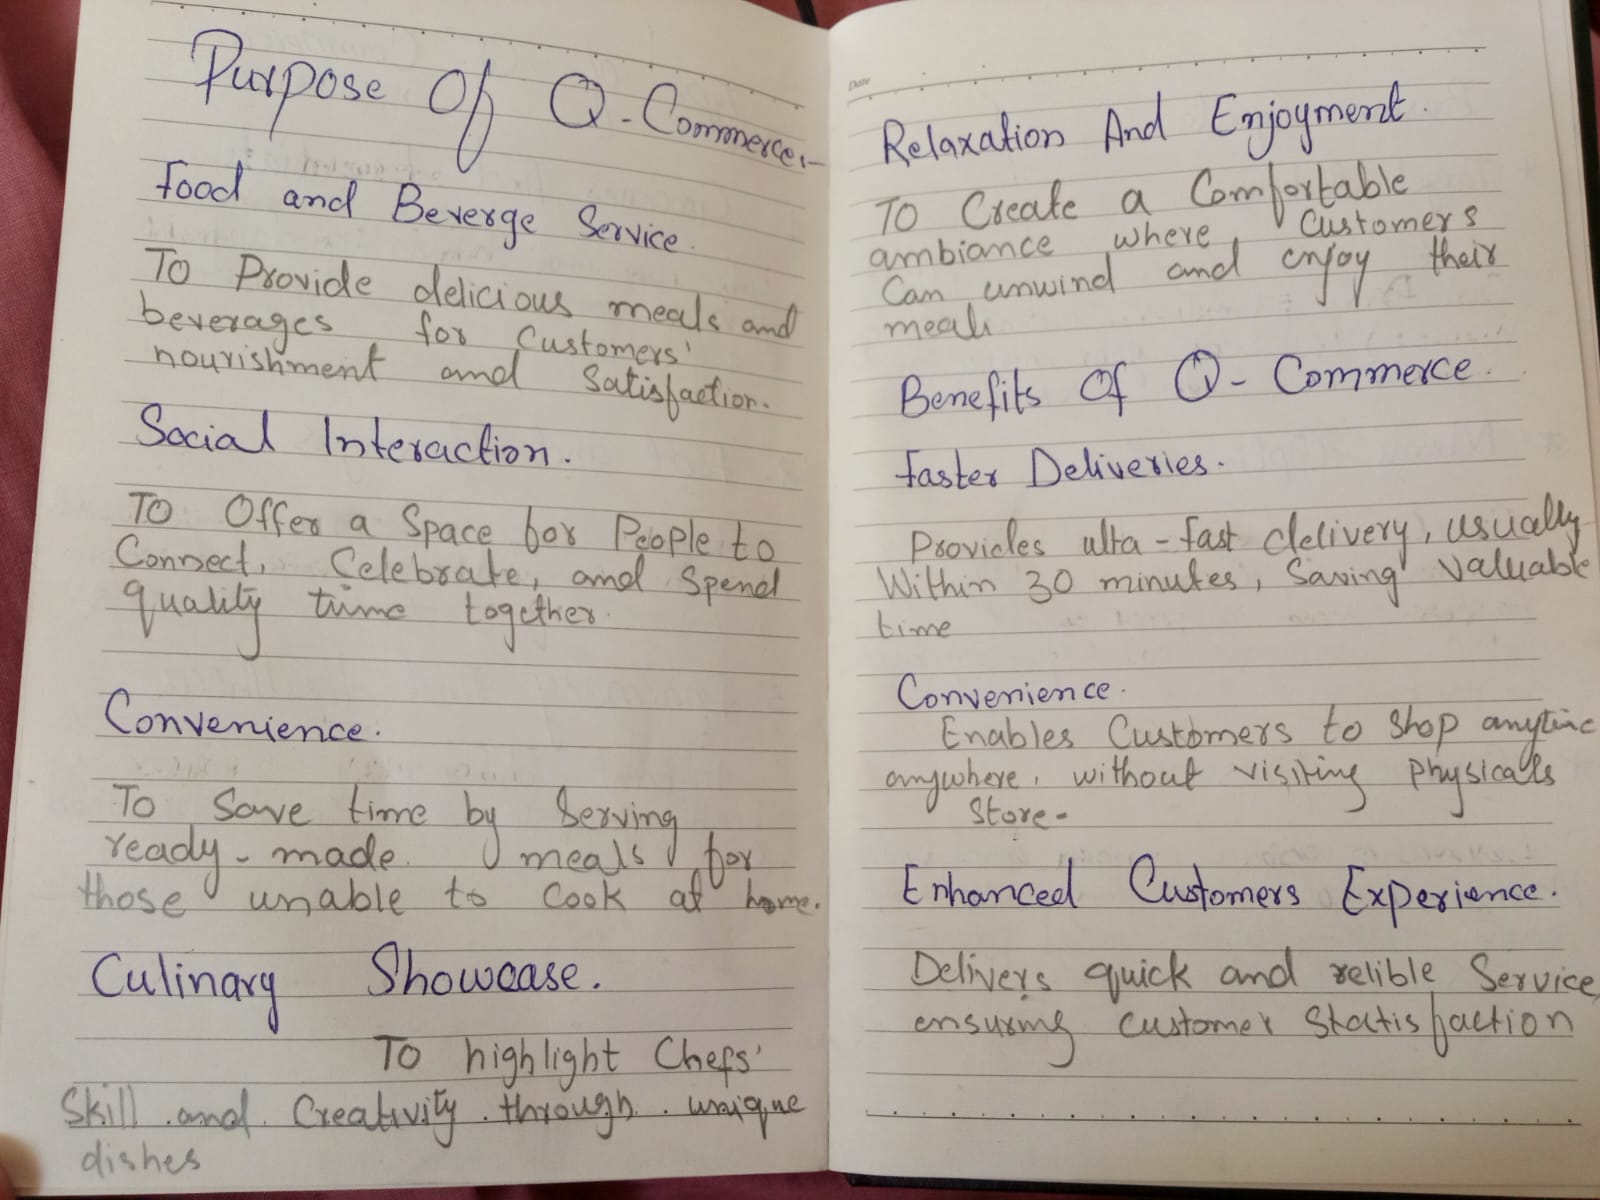 Purpose Of Q-Commerce:-
Food and Beverge Service.
To Provide delicious meals and
beverages for Customers'
nourishment and Satisfaction.
Social Interaction.
To Offer a Space for People to
Connect, Celebrate, and Spend
quality time together.
Convenience.
To Save time by Serving
ready-made meals for
those unable to Cook at home.
Culinary Showcase.
To highlight Chefs'
Skill and Creativity through unique
dishes
Date
Relaxation And Enjoyment.
To Create a Comfortable
ambiance where Customers
Can unwind and enjoy their
meals
Benefits Of Q-Commerce.
Faster Deliveries.
Provides ulta-fast delivery, usually
Within 30 minutes, Saving valuable
time
Convenience.
Enables Customers to Shop anytime
anywhere, without visiting Physicals
Store-
Enhanced Customers Experience.
Delivers quick and relible Service,
ensuring customer Statisfaction